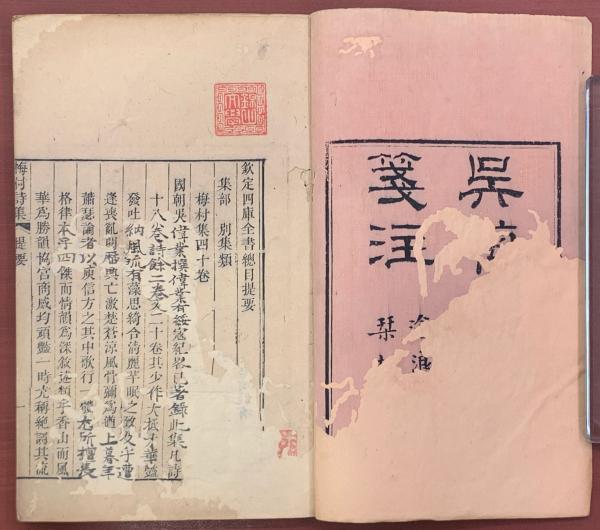 吳
箋注
滄浪
栞
欽定四庫全書總目提要
集部 別集類
梅村集四十卷
國朝吳偉業撰偉業有綏寇紀畧已著錄此集凡詩
十八卷詩餘二卷文二十卷其少作大抵才華豔
發吐納風流有藻思綺合清麗芊眠之致及乎遭
逢喪亂閱歷興亡激楚蒼涼風骨彌為遒上暮年
蕭瑟論者以庾信方之其中歌行一體尤所擅長
格律本乎四傑而情韻為深敘述類乎香山而風
華為勝韻協宮商感均頑豔一時尤稱絕調其流
梅村詩集 提要